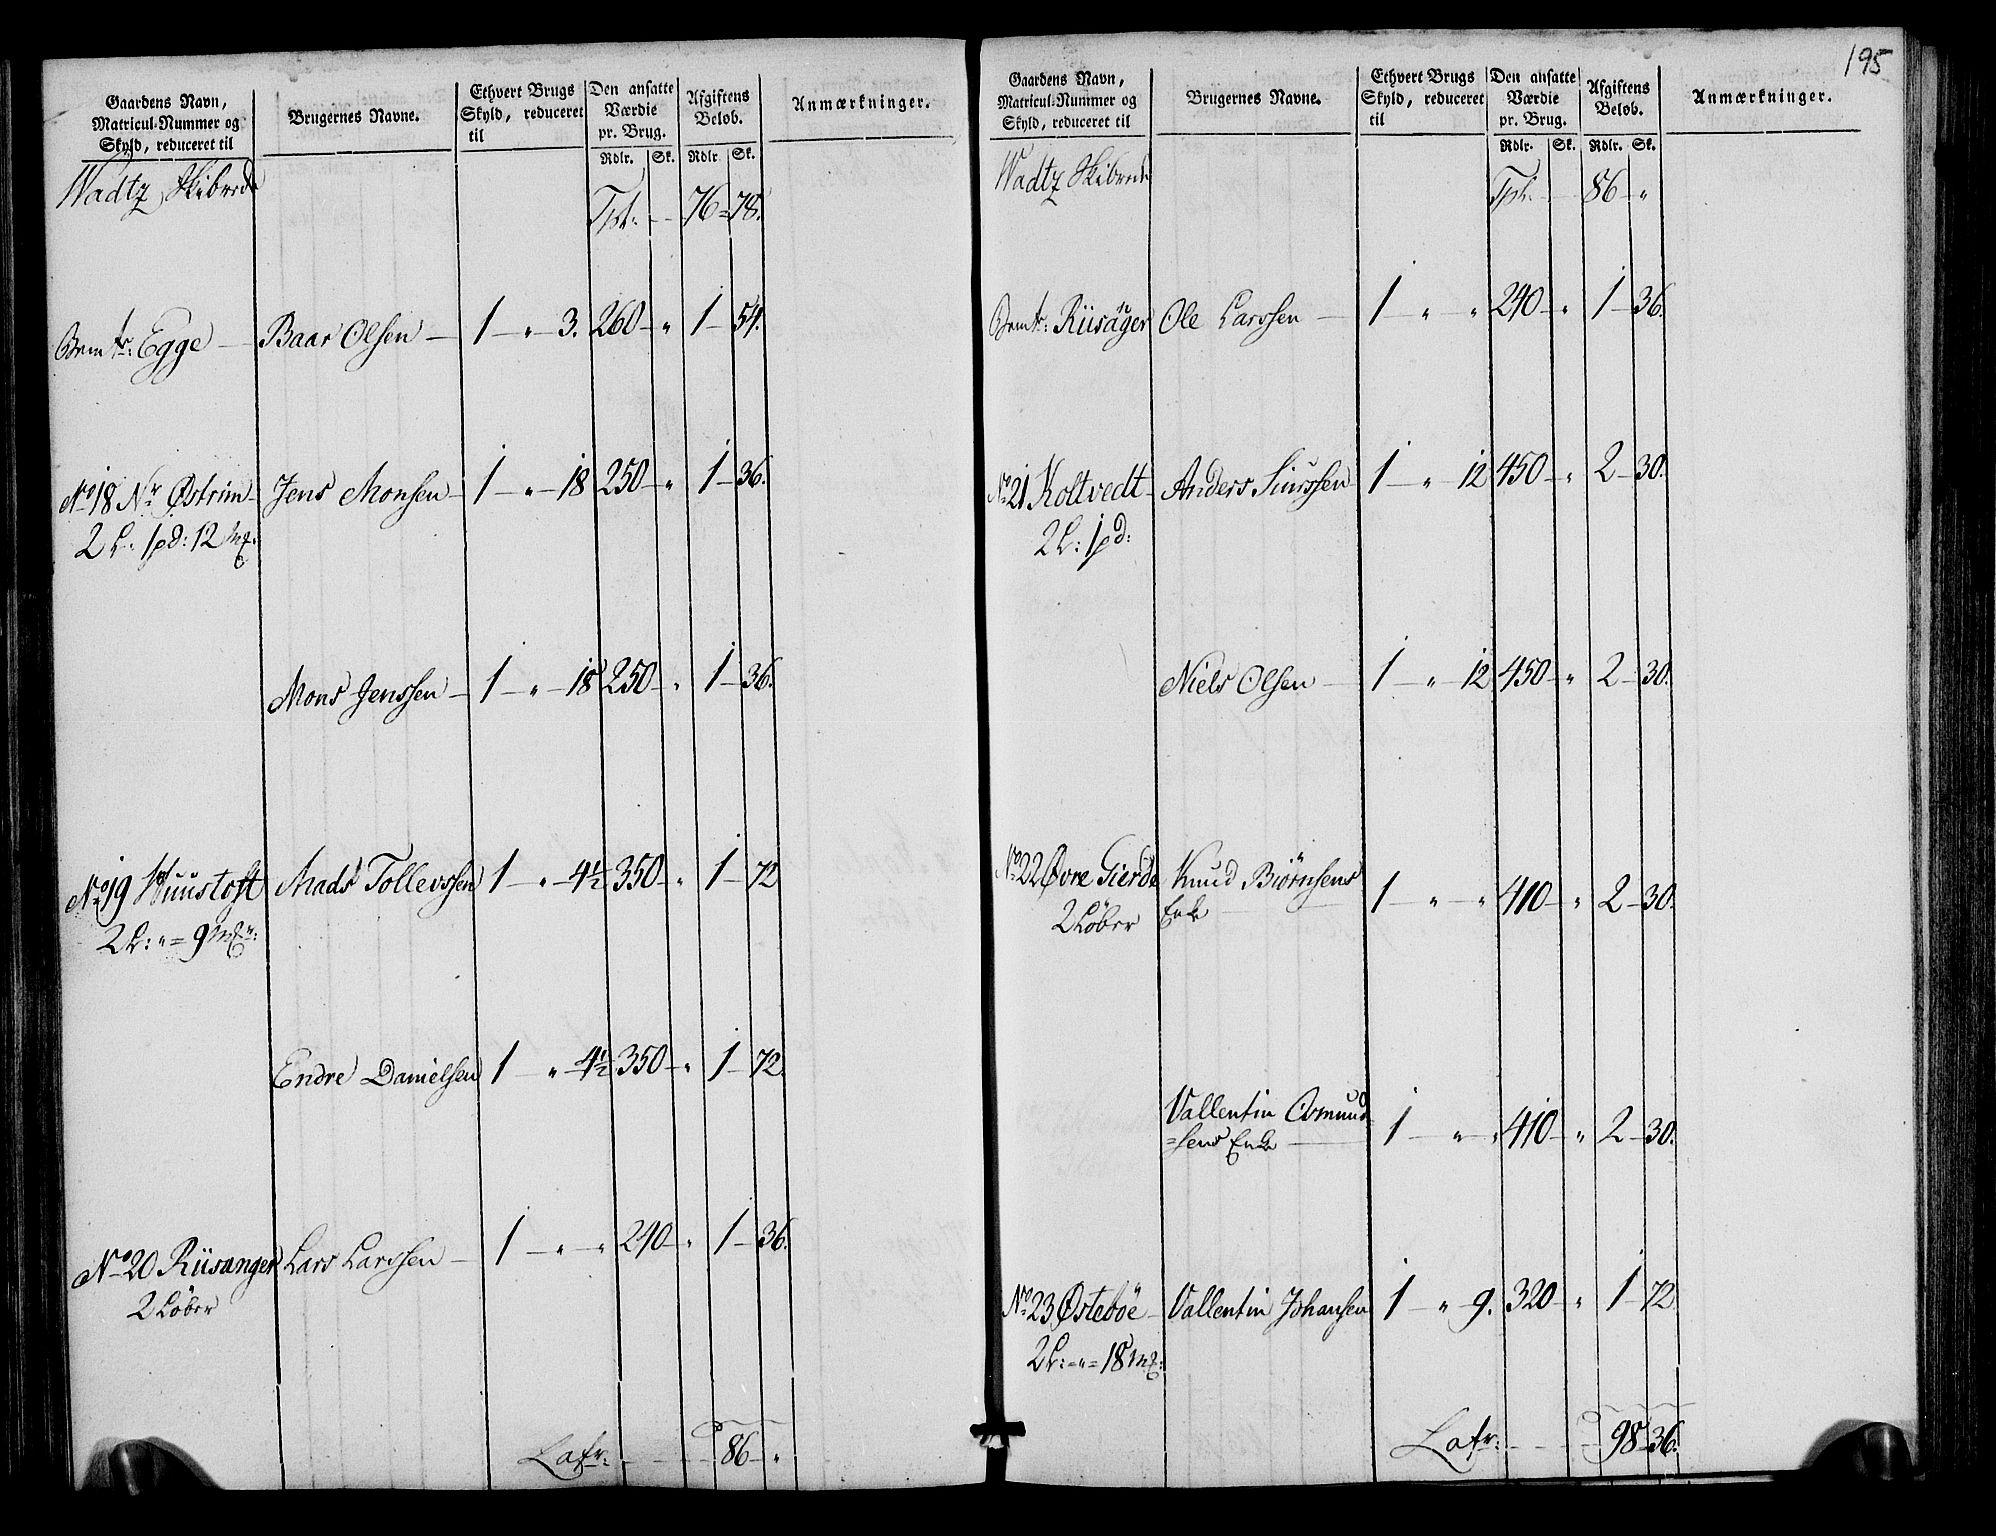 Gaardens Navn, Matricul-Nummer og Skyld, reduceret til
Brugernes Navne.
Ethvert Brugs Skyld, reduceret til
Den ansatte Værdie pr. Brug.
Afgiftens Beløb.
Anmærkninger.
Rdlr. Sk. Rdlr Sk.
Wadtz Skibrede
Tpt: — 76 = 78.
Egge — Baar Olsen — 1 — " — 3. 260 — " 1 — 54.
No 18 Nr Østrim — Jens Monsen — 1 — " — 18 250 — " 1 — 36.
2 L: 1 pd: 12 Mk:
Mons Jenssen — 1 — " — 18 250 — " 1 — 36.
No 19 Huustoft Mads Tollevssen 1 — " — 4½ 350 — " 1 — 72
2 L: " = 9 Mk:
Endre Danielsen 1 — " — 4½ 350 — " 1 — 72.
No 20 Riisanger Lars Larssen — 1 — " — " 240 — " 1 — 36.
2 Løber
Lafr: — 86 — "
195
Gaardens Navn, Matricul-Nummer og Skyld, reduceret til
Brugernes Navne.
Ethvert Brugs Skyld, reduceret til
Den ansatte Værdie pr. Brug.
Afgiftens Beløb.
Anmærkninger.
Rdlr. Sk. Rdlr. Sk.
Wadtz Skibrede
Tpt: — 86 — "
Riisanger Ole Larssen — 1 — " " 240 — " 1 — 36.
No 21 Koltvedt — Anders Siurssen — 1 — " 12 450 — " 2 — 30.
2 L: 1 pd:
Niels Olsen — 1 — " — 12 450 — " 2 — 30.
No 22 Øvre Gierde Knud Biørnsens
2 Løber Enke — 1 — " — " 410 — " 2 — 30.
Vallentin Osmund
=sens Enke — 1 — " " 410 — " 2 — 30.
No 23 Østebøe — Vallentin Johansen 1 — " 9. 320 — " 1 — 72
2 L: = " = 18 Mk:
Lafr: — 98 — 36.